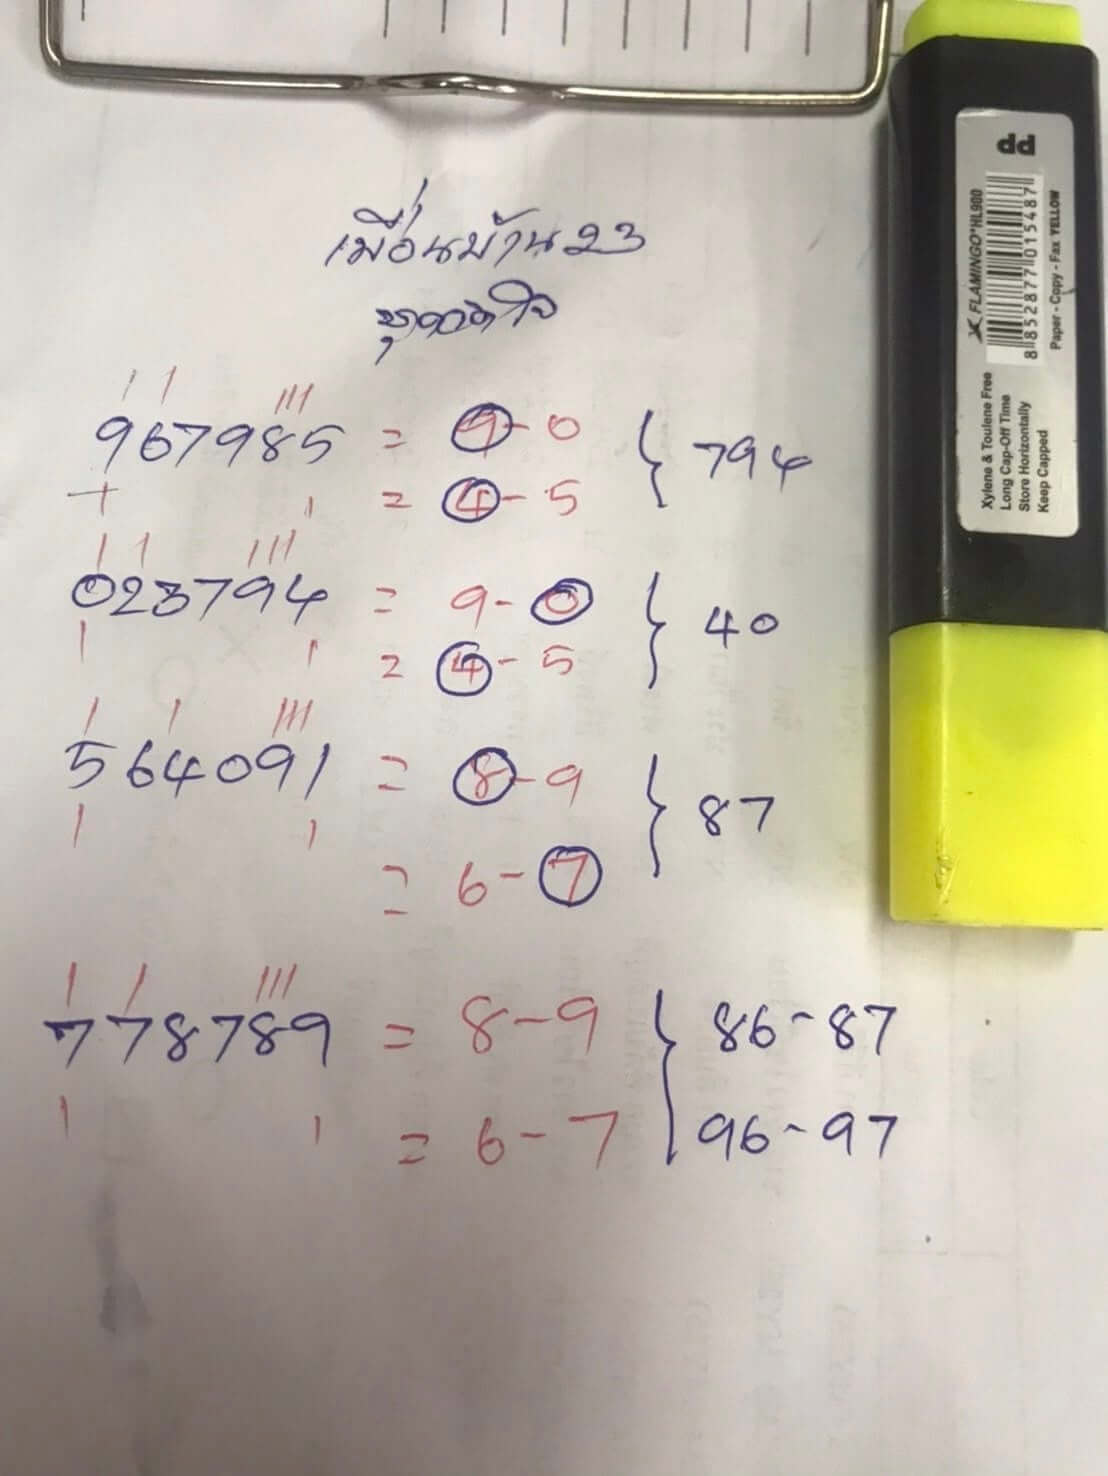 เมื่อนบ้าน 23
967985 = 9-0 } 794
= 4-5
023794 = 9-0 } 40
= 4-5
564091 = 8-9 } 87
= 6-7
778789 = 8-9 } 86-87
= 6-7 96-97
dd
FLAMINGO HL900
8 852877 015487
Paper - Copy - Fax YELLOW
Xylene & Toulene Free
Long Cap-Off Time
Store Horizontally
Keep Capped